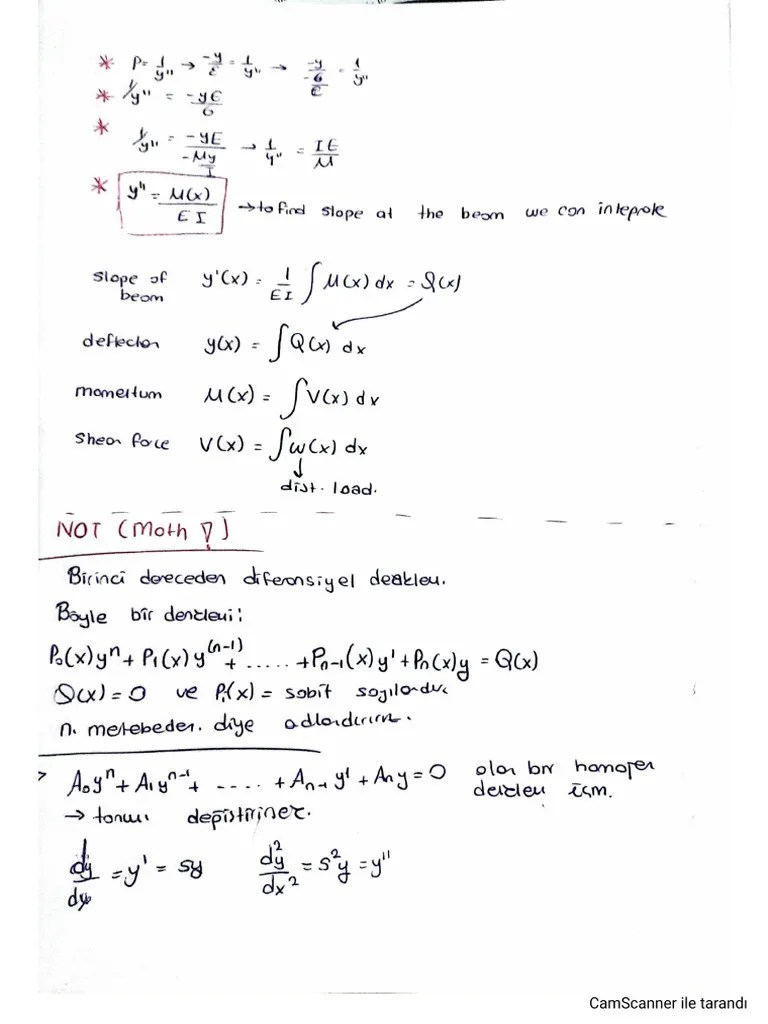 * P = 1/y'' → -y/ε = 1/y'' → -y/(-6/E) = 1/y''
* 1/y'' = -yE/6
* 1/y'' = -yE/(-My/I) → 1/y'' = IE/M
* y'' = M(x)/EI → to find slope at the beam we can integrate
slope of beam y'(x) = 1/EI ∫M(x) dx = Q(x)
y(x) = ∫Q(x) dx
momentum M(x) = ∫V(x) dx
Shear force V(x) = ∫w(x) dx
↓
dist. load.
NOT (Math !)
Birinci dereceden diferansiyel denklem.
Böyle bir denklemi:
P₀(x)yⁿ + P₁(x)y⁽ⁿ⁻¹⁾ + ..... + Pₙ₋₁(x)y' + Pₙ(x)y = Q(x)
Q(x) = 0 ve Pᵢ(x) = sabit sayılardır
n. mertebeden. diye adlandırırız.
> A₀yⁿ + A₁yⁿ⁻¹ + ..... + Aₙ₋₁y' + Aₙy = 0 olan bir homojen
denklem için.
→ değiştirirsek.
dy/dx = y' = sy d²y/dx² = s²y = y''
CamScanner ile tarandı